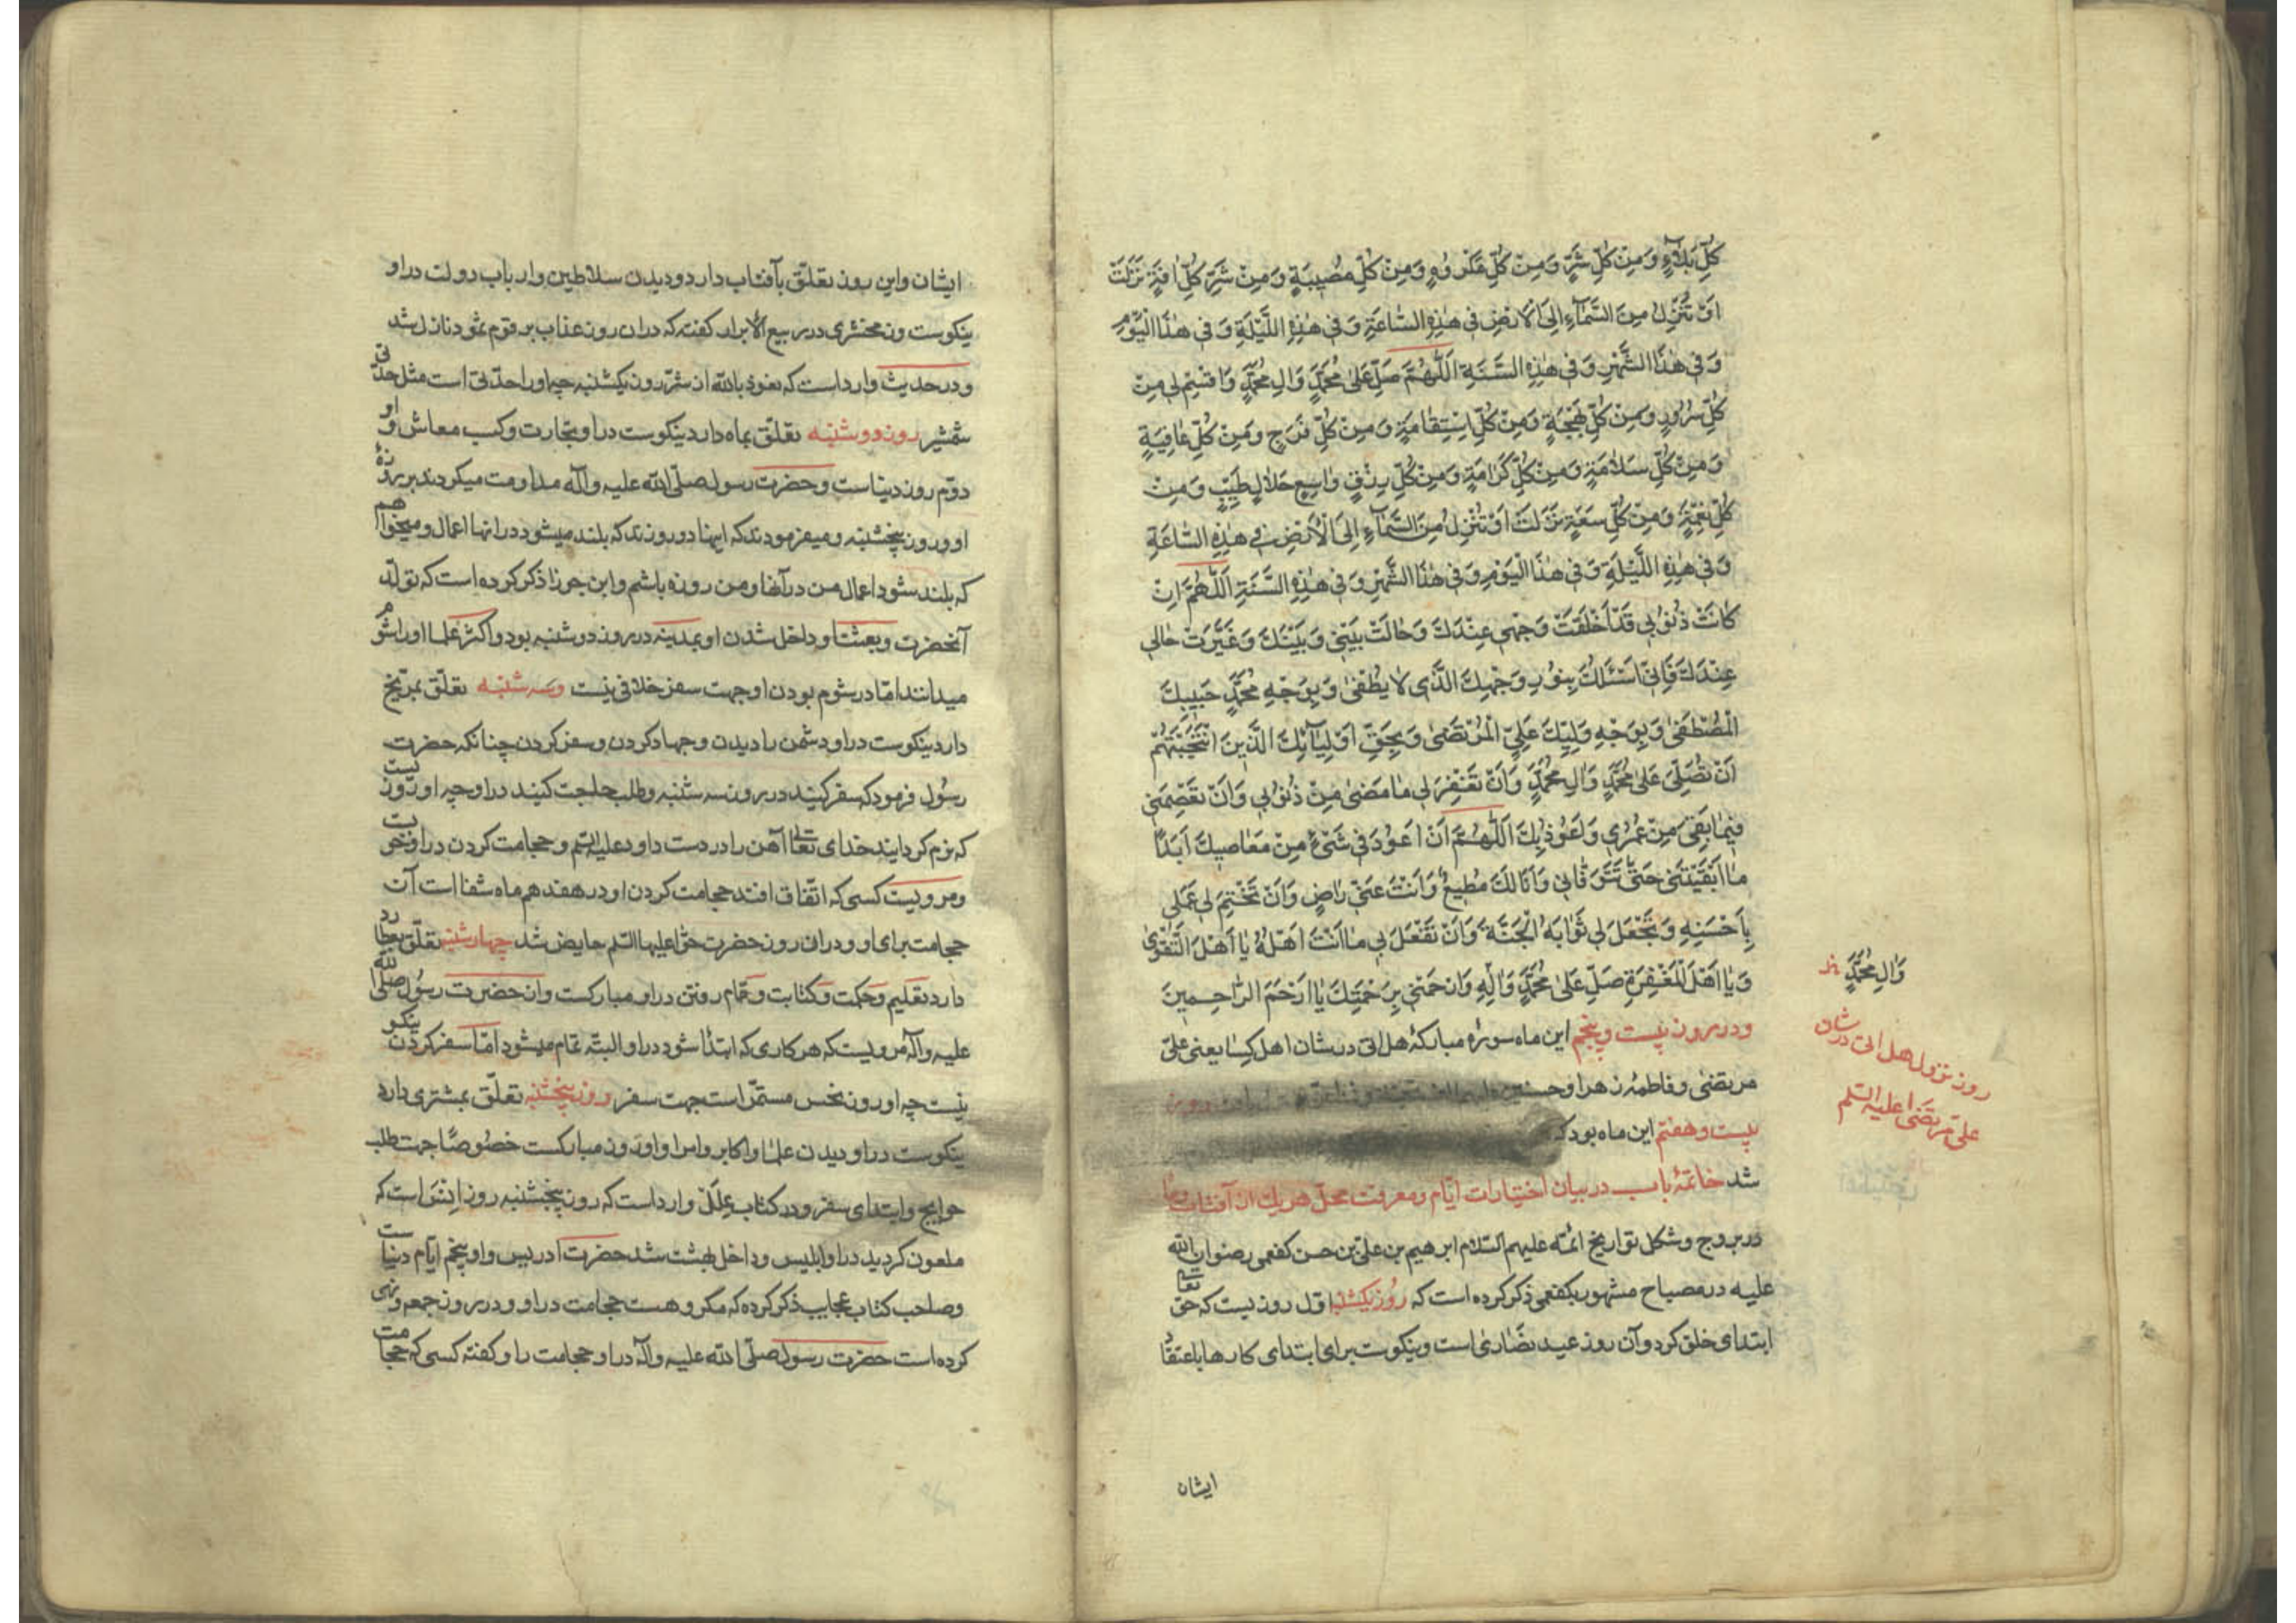 كُلِّ بَلَاءٍ وَمِنْ كُلِّ شَرٍّ وَمِنْ كُلِّ مَكْرُوهٍ وَمِنْ كُلِّ مُصِيبَةٍ وَمِنْ شَرِّ كُلِّ اٰفَةٍ نَزَلَتْ
اَوْ تُنْزِلُ مِنَ السَّمَآءِ اِلَى الْاَرْضِ فِى هٰذِهِ السَّاعَةِ وَفِى هٰذِهِ اللَّيْلَةِ وَفِى هٰذَا الْيَوْمِ
وَفِى هٰذَا الشَّهْرِ وَفِى هٰذِهِ السَّنَةِ اَللّٰهُمَّ صَلِّ عَلٰى مُحَمَّدٍ وَاٰلِ مُحَمَّدٍ وَاقْسِمْ لِى مِنْ
كُلِّ سُرُورٍ وَمِنْ كُلِّ بَهْجَةٍ وَمِنْ كُلِّ اِسْتِقَامَةٍ وَمِنْ كُلِّ فَرَجٍ وَمِنْ كُلِّ عَافِيَةٍ
وَمِنْ كُلِّ سَلَامَةٍ وَمِنْ كُلِّ كَرَامَةٍ وَمِنْ كُلِّ رِزْقٍ وَاسِعٍ حَلَالٍ طَيِّبٍ وَمِنْ
كُلِّ نِعْمَةٍ وَمِنْ كُلِّ سَعَةٍ نَزَلَتْ اَوْ تُنْزِلُ مِنَ السَّمَآءِ اِلَى الْاَرْضِ فِى هٰذِهِ السَّاعَةِ
وَفِى هٰذِهِ اللَّيْلَةِ وَفِى هٰذَا الْيَوْمِ وَفِى هٰذَا الشَّهْرِ وَفِى هٰذِهِ السَّنَةِ اَللّٰهُمَّ اِنْ
كَانَتْ ذُنُوبِى قَدْ اَخْلَقَتْ وَجْهِى عِنْدَكَ وَحَالَتْ بَيْنِى وَبَيْنَكَ وَغَيَّرَتْ حَالِى
عِنْدَكَ فَاِنِّى اَسْئَلُكَ بِنُورِ وَجْهِكَ الَّذِى لَا يُطْفٰى وَبِوَجْهِ مُحَمَّدٍ حَبِيبِكَ
الْمُصْطَفٰى وَبِوَجْهِ وَلِيِّكَ عَلِيٍّ الْمُرْتَضٰى وَبِحَقِّ اَوْلِيَآئِكَ الَّذِينَ انْتَجَبْتَهُمْ
اَنْ تُصَلِّىَ عَلٰى مُحَمَّدٍ وَاٰلِ مُحَمَّدٍ وَاَنْ تَغْفِرَ لِى مَا مَضٰى مِنْ ذُنُوبِى وَاَنْ تَعْصِمَنِى
فِيمَا بَقِىَ مِنْ عُمْرِى وَاَعُوذُ بِكَ اَللّٰهُمَّ اَنْ اَعُودَ فِى شَىْءٍ مِنْ مَعَاصِيكَ اَبَدًا
مَا اَبْقَيْتَنِى حَتّٰى تَتَوَفَّانِى وَاَنَا لَكَ مُطِيعٌ وَاَنْتَ عَنِّى رَاضٍ وَاَنْ تَخْتِمَ لِى عَمَلِى
بِاَحْسَنِهِ وَتَجْعَلَ لِى ثَوَابَهُ الْجَنَّةَ وَاَنْ تَفْعَلَ بِى مَا اَنْتَ اَهْلُهُ يَا اَهْلَ التَّقْوٰى
وَيَا اَهْلَ الْمَغْفِرَةِ صَلِّ عَلٰى مُحَمَّدٍ وَاٰلِهِ وَارْحَمْنِى بِرَحْمَتِكَ يَا اَرْحَمَ الرَّاحِمِينَ
ودر روز بیست و پنجم این ماه سورهٔ مبارکهٔ هل اتی در شان اهل کسا یعنی علیّ
مرتضی و فاطمهٔ زهرا و حسنین
بیست و هفتم این ماه بود که
شد خاتمهٔ باب در بیان اختیارات ایّام و معرفت محلّ هر یك از آفتاب و ماه
در بروج و شکل تواریخ ائمّه علیهم السّلام ابرهیم بن علیّ بن حسن کفعمی رضوان الله
علیه در مصباح مشهور بکفعمی ذکر کرده است که روز یکشنبه اوّل روزیست که حقّ تعالی
ابتدای خلق کرد و آن روز عید نصاریٰ است و نیکوست برای ابتدای کارها باعتقاد
وَاٰلِ مُحَمَّدٍ
روز نزول هل اتی در شان
علیّ مرتضی علیه السّلم
ایشان
ایشان و این روز تعلّق بآفتاب دارد و دیدن سلاطین و ارباب دولت در او
نیکوست و زمخشری در ربیع الابرار گفته که در ان روز عذاب بر قوم ثمود نازل شد
و در حدیث وارد است که نعوذ بالله از شرّ روز یکشنبه چه او را حدّتی است مثل حدّتی
شمشیر روز دوشنبه تعلّق بماه دارد نیکوست در او تجارت و کسب معاش و او
دوّم روز دنیاست و حضرت رسول صلّی الله علیه و آله مداومت میکردند بر روزهٔ
او و روز پنجشنبه و میفرمودند که اینها دو روزند که بلند میشود در انها اعمال و میخواهم
که بلند شود اعمال من در آنها و من روزه باشم و ابن جوزا ذکر کرده است که تولّد
آنحضرت و بعثتا و داخل شدن او بمدینه در روز دوشنبه بود و اکثر علما او را شوم
میدانند امّا در شوم بودن او جهت سفر خلافی نیست و سه شنبه تعلّق بمرّیخ
دارد نیکوست در او دشمن را دیدن و جهاد کردن و سفر کردن چنانکه حضرت
رسول فرمود که سفر کنید در روز سه شنبه و طلب حاجت کنید در او چه او روزیست
که نرم گردانید خدای تعالی آهن را در دست داود علیه السّلم و حجامت کردن در او خوبست
و مرویست کسی که اتّفاق افتد حجامت کردن او در هفدهم ماه شفا است آن
حجامت برای او و در ان روز حضرت حوّا علیها السّلم حایض شد چهارشنبه تعلّق بعطارد
دارد تعلیم و حکمت و کتابت و حمّام رفتن در او مبارکست و از حضرت رسول صلّی الله
علیه و آله مرویست که هر کاری که ابتدا شود در او البتّه تمام میشود امّا سفر کردن نیکو
نیست چه او روز نحس مستمرّ است جهت سفر و روز پنجشنبه تعلّق بمشتری دارد
نیکوست در او دیدن علما و اکابر و امرا و او روز مبارکست خصوصًا جهت طلب
حوایج و ابتدای سفر و در کتاب علل وارد است که روز پنجشنبه روز انسَ است که
ملعون گردید در او ابلیس و داخل بهشت شد حضرت ادریس و او پنجم ایّام دنیاست
و صاحب کتاب عجایب ذکر کرده که مکروهست حجامت در او و در روز جمعه و نهی
کرده است حضرت رسول صلّی الله علیه و آله در او حجامت را و گفته کسی که حجامت